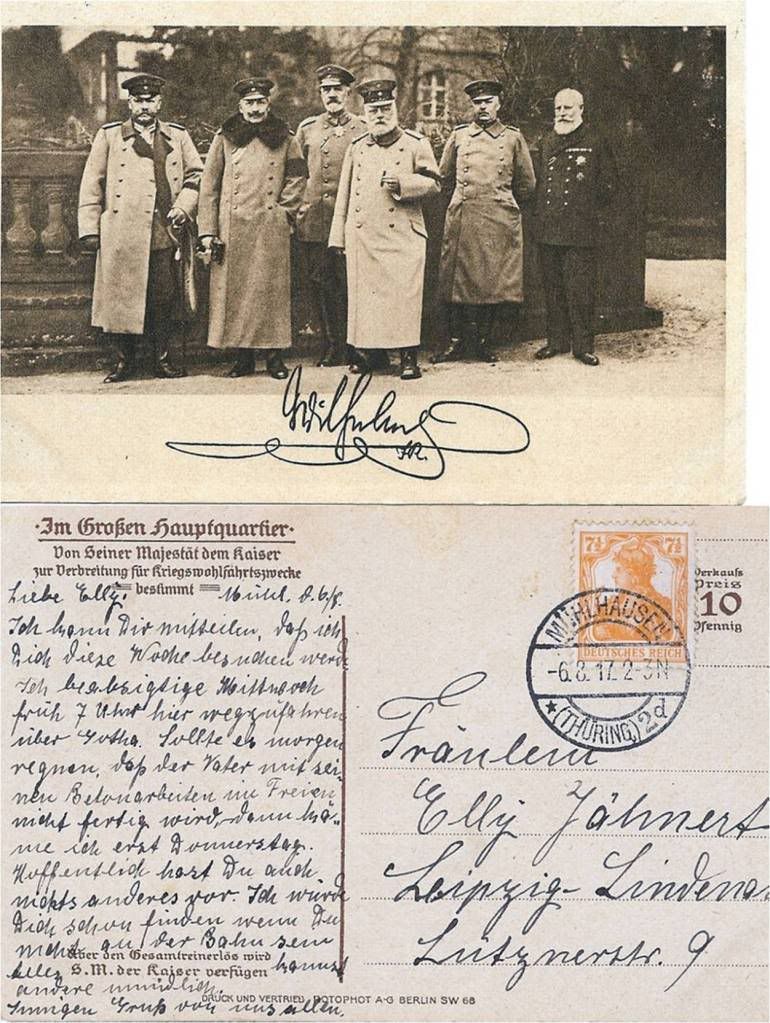 Wilhelm
I.R.
·Im Großen Hauptquartier·
Von Seiner Majestät dem Kaiser
zur Verbreitung für Kriegswohlfahrtszwecke
bestimmt
Liebe Elly! Mühl. d. 6/8.
Ich kann Dir mitteilen, daß ich
Dich diese Woche besuchen werde
Ich beabsigtige Mittwoch
früh 7 Uhr hier wegzufahren
über Gotha. Sollte es morgen
regnen, daß der Vater mit sei-
nen Betonarbeiten im Freien
nicht fertig wird, dann kä-
me ich erst Donnerstag.
Hoffentlich hast Du auch
nichts anderes vor. Ich würde
Dich schon finden wenn Du
nicht an der Bahn sein
kannst
andere mündlich.
Innigen Gruß von uns allen.
Über den Gesamtreinerlös wird
S. M. der Kaiser verfügen
DRUCK UND VERTRIEB ROTOPHOT A·G BERLIN SW 68
7½ 7½
DEUTSCHES REICH
MÜHLHAUSEN
-6.8.17. 2-3N
★(THÜRING.) 2d
Verkaufs
Preis
10
Pfennig
Fräulein
Elly Jähnert
Leipzig-Lindenau
Lütznerstr. 9